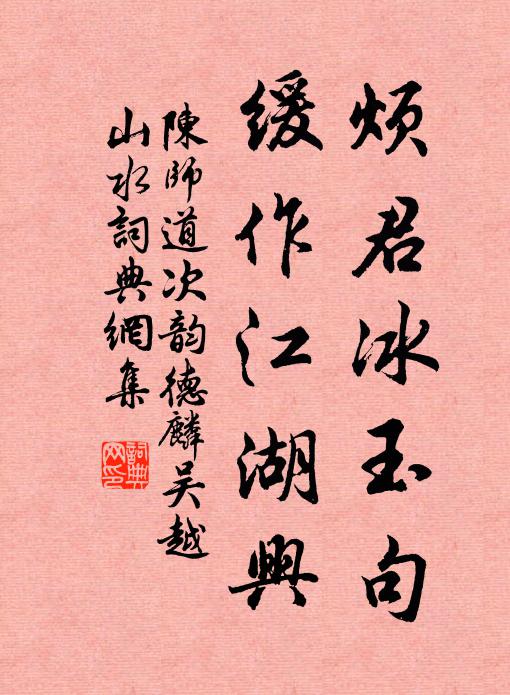 烦君冰玉句
缓作江湖興
陳師道次韵德麟吴越
山水詞典網集
詞典
网印